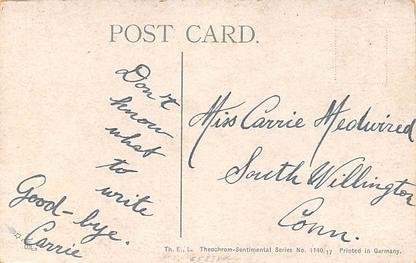 POST CARD.
Don't
know
what
to
write
Good-bye.
Carrie
Miss Carrie Medwired
South Willington
Conn.
Th. E. L. Theochrom-Sentimental Series No. 1140/37 Printed in Germany.